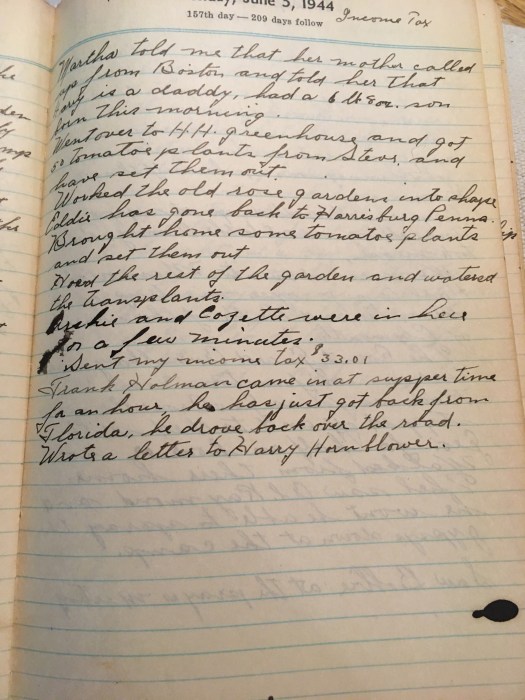 June 5, 1944
157th day—209 days follow Income Tax
Martha told me that her mother called
from Boston and told her that
is a daddy, had a 6 lb 8 oz. son
born this morning.
Went over to H.H. greenhouse and got
tomatoe plants from Steve, and
have set them out.
Worked the old rose gardens into shape
Eddie has gone back to Harrisburg Penna.
Brought home some tomatoe plants
and set them out
Hoed the rest of the garden and watered
the transplants.
Archie and Cozette were in here
for a few minutes.
Sent my income tax $33.01
Frank Holman came in at supper time
for an hour, he has just got back from
Florida, he drove back over the road.
Wrote a letter to Harry Hornblower.